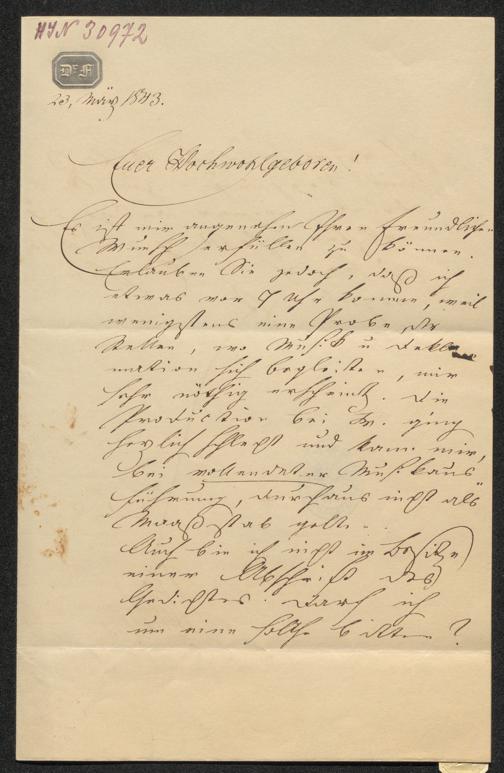 HIN 30972
Dr F
23, März 1843.
Euer Hochwohlgeboren!
Es ist mir angenehm Ihren freundlichen
Wunsch erfüllen zu können.
Erlauben Sie jedoch, daß ich
etwas vor 7 Uhr komme, weil
wenigstens eine Probe der
Stellen, wo Musik u Dekla-
mation sich begleiten, mir
sehr nöthig erscheint. Die
Production bei W. ging
herzlich schlecht und kann mir,
bei vollendeter Musikaus-
führung, durchaus nicht als
Maaßstab gelten.
Auch bin ich nicht im Besitze
einer Abschrift des
Gedichtes. Darf ich
um eine solche bitten?